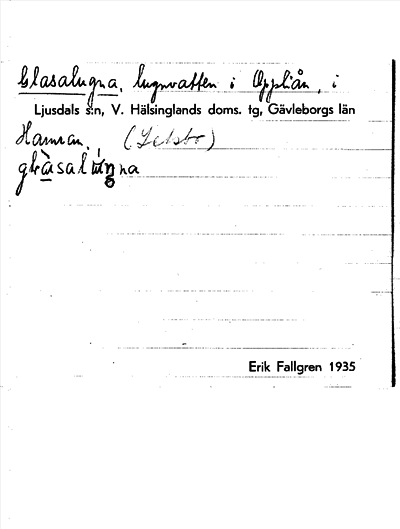 Glasalugna, lugnvatten i Oppliån, i
Ljusdals s:n, V. Hälsinglands doms. tg, Gävleborgs län
Hamran, (Letsbo)
Erik Fallgren 1935